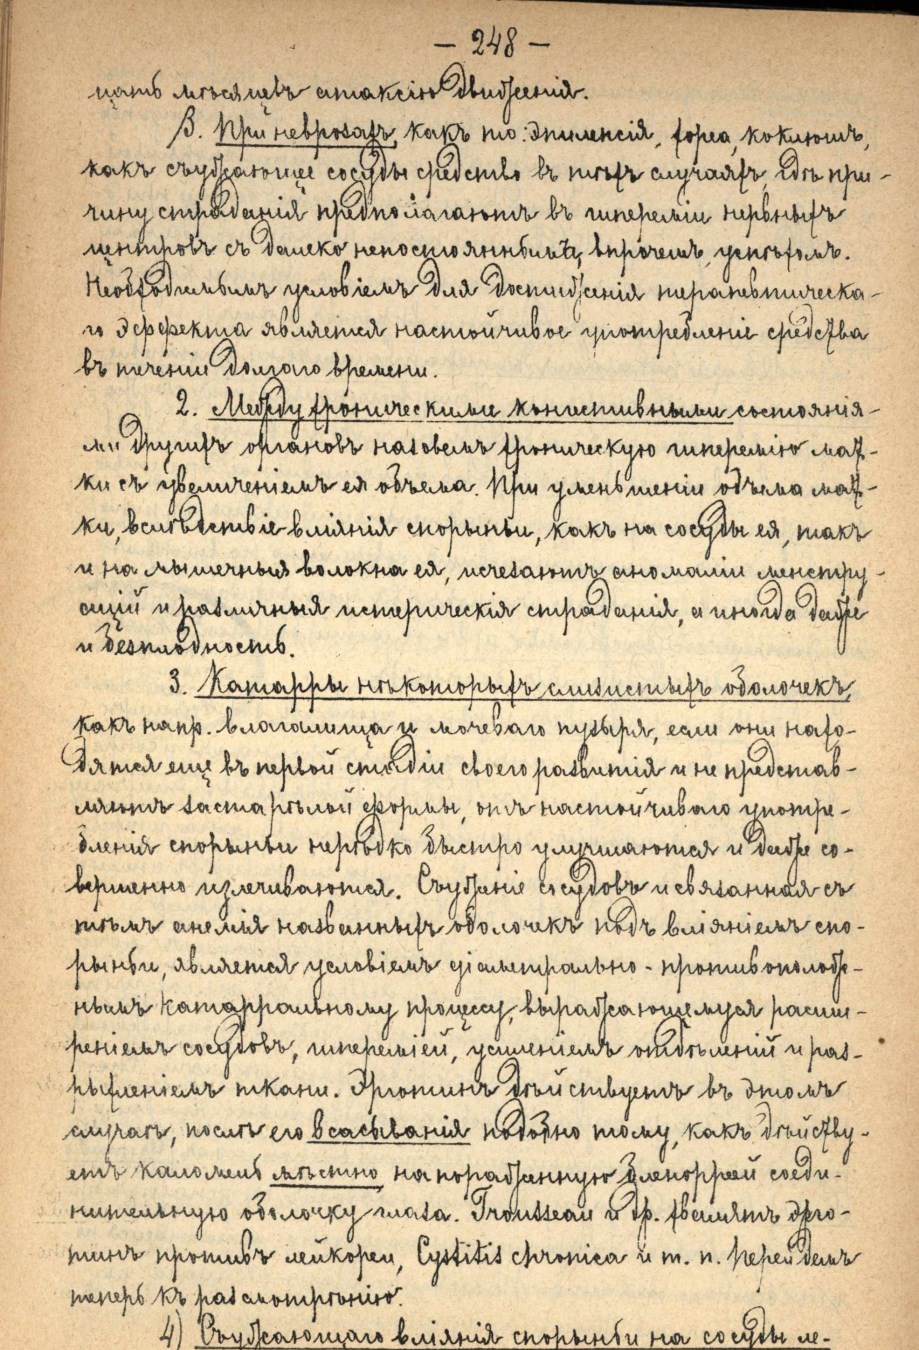 — 248 —
цать мѣсяцевъ атаксію движенія.
β. При неврозахъ, какъ то: эпилепсія, хорея, коклюшъ,
какъ съуживающее сосуды средство въ тѣхъ случаяхъ, гдѣ при-
чину страданія предполагаютъ въ гипереміи нервныхъ
центровъ съ далеко непостояннымъ, впрочемъ, успѣхомъ.
Необходимымъ условіемъ для достиженія терапевтическа-
го эффекта является настойчивое употребленіе средства
въ теченіи долгаго времени.
2. Между хроническими конгестивными состоянія-
ми другихъ органовъ назовемъ хроническую гиперемію мат-
ки съ увеличеніемъ ея объема. При уменьшеніи объема мат-
ки, вслѣдствіе вліянія спорыньи, какъ на сосуды ея, такъ
и на мышечныя волокна ея, исчезаютъ аномаліи менстру-
ацій и различныя истерическія страданія, а иногда даже
и безплодность.
3. Катарры нѣкоторыхъ слизистыхъ оболочекъ,
какъ напр. влагалища и мочеваго пузыря, если они нахо-
дятся еще въ первой стадіи своего развитія и не представ-
ляютъ застарѣлой формы, отъ настойчиваго употре-
бленія спорыньи нерѣдко быстро улучшаются и даже со-
вершенно излечиваются. Съуженіе сосудовъ и связанная съ
тѣмъ анемія названныхъ оболочекъ подъ вліяніемъ спо-
рыньи, является условіемъ діаметрально-противополож-
нымъ катарральному процессу, выражающемуся расши-
реніемъ сосудовъ, гипереміей, усиленіемъ отдѣленій и раз-
рыхленіемъ ткани. Эрготинъ дѣйствуетъ въ этомъ
случаѣ, послѣ его всасыванія подобно тому, какъ дѣйству-
етъ каломель мѣстно на пораженную бленорреей соеди-
нительную оболочку глаза. Trousseau и др. хвалятъ эрго-
тинъ противъ лейкореи, Cystitis chronica и т. п. Перейдемъ
теперь къ разсмотрѣнію.
4) Съужающаго вліянія спорыньи на сосуды ле-